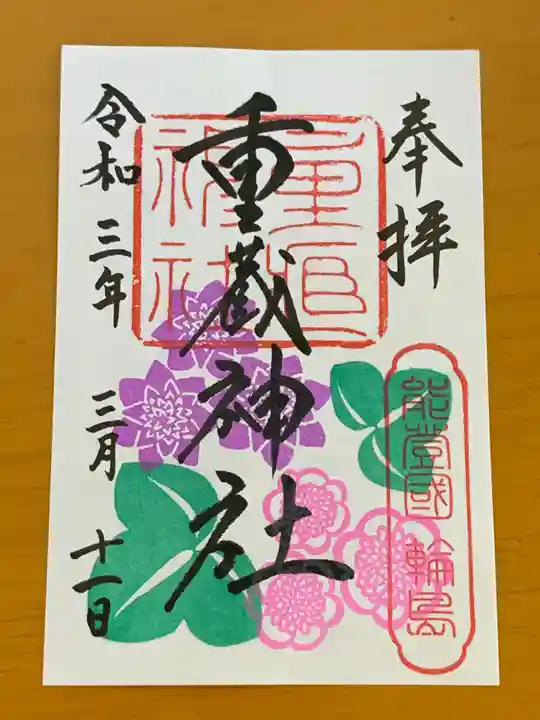 奉拝
能登國 輪島
重蔵神社
令和三年三月十一日